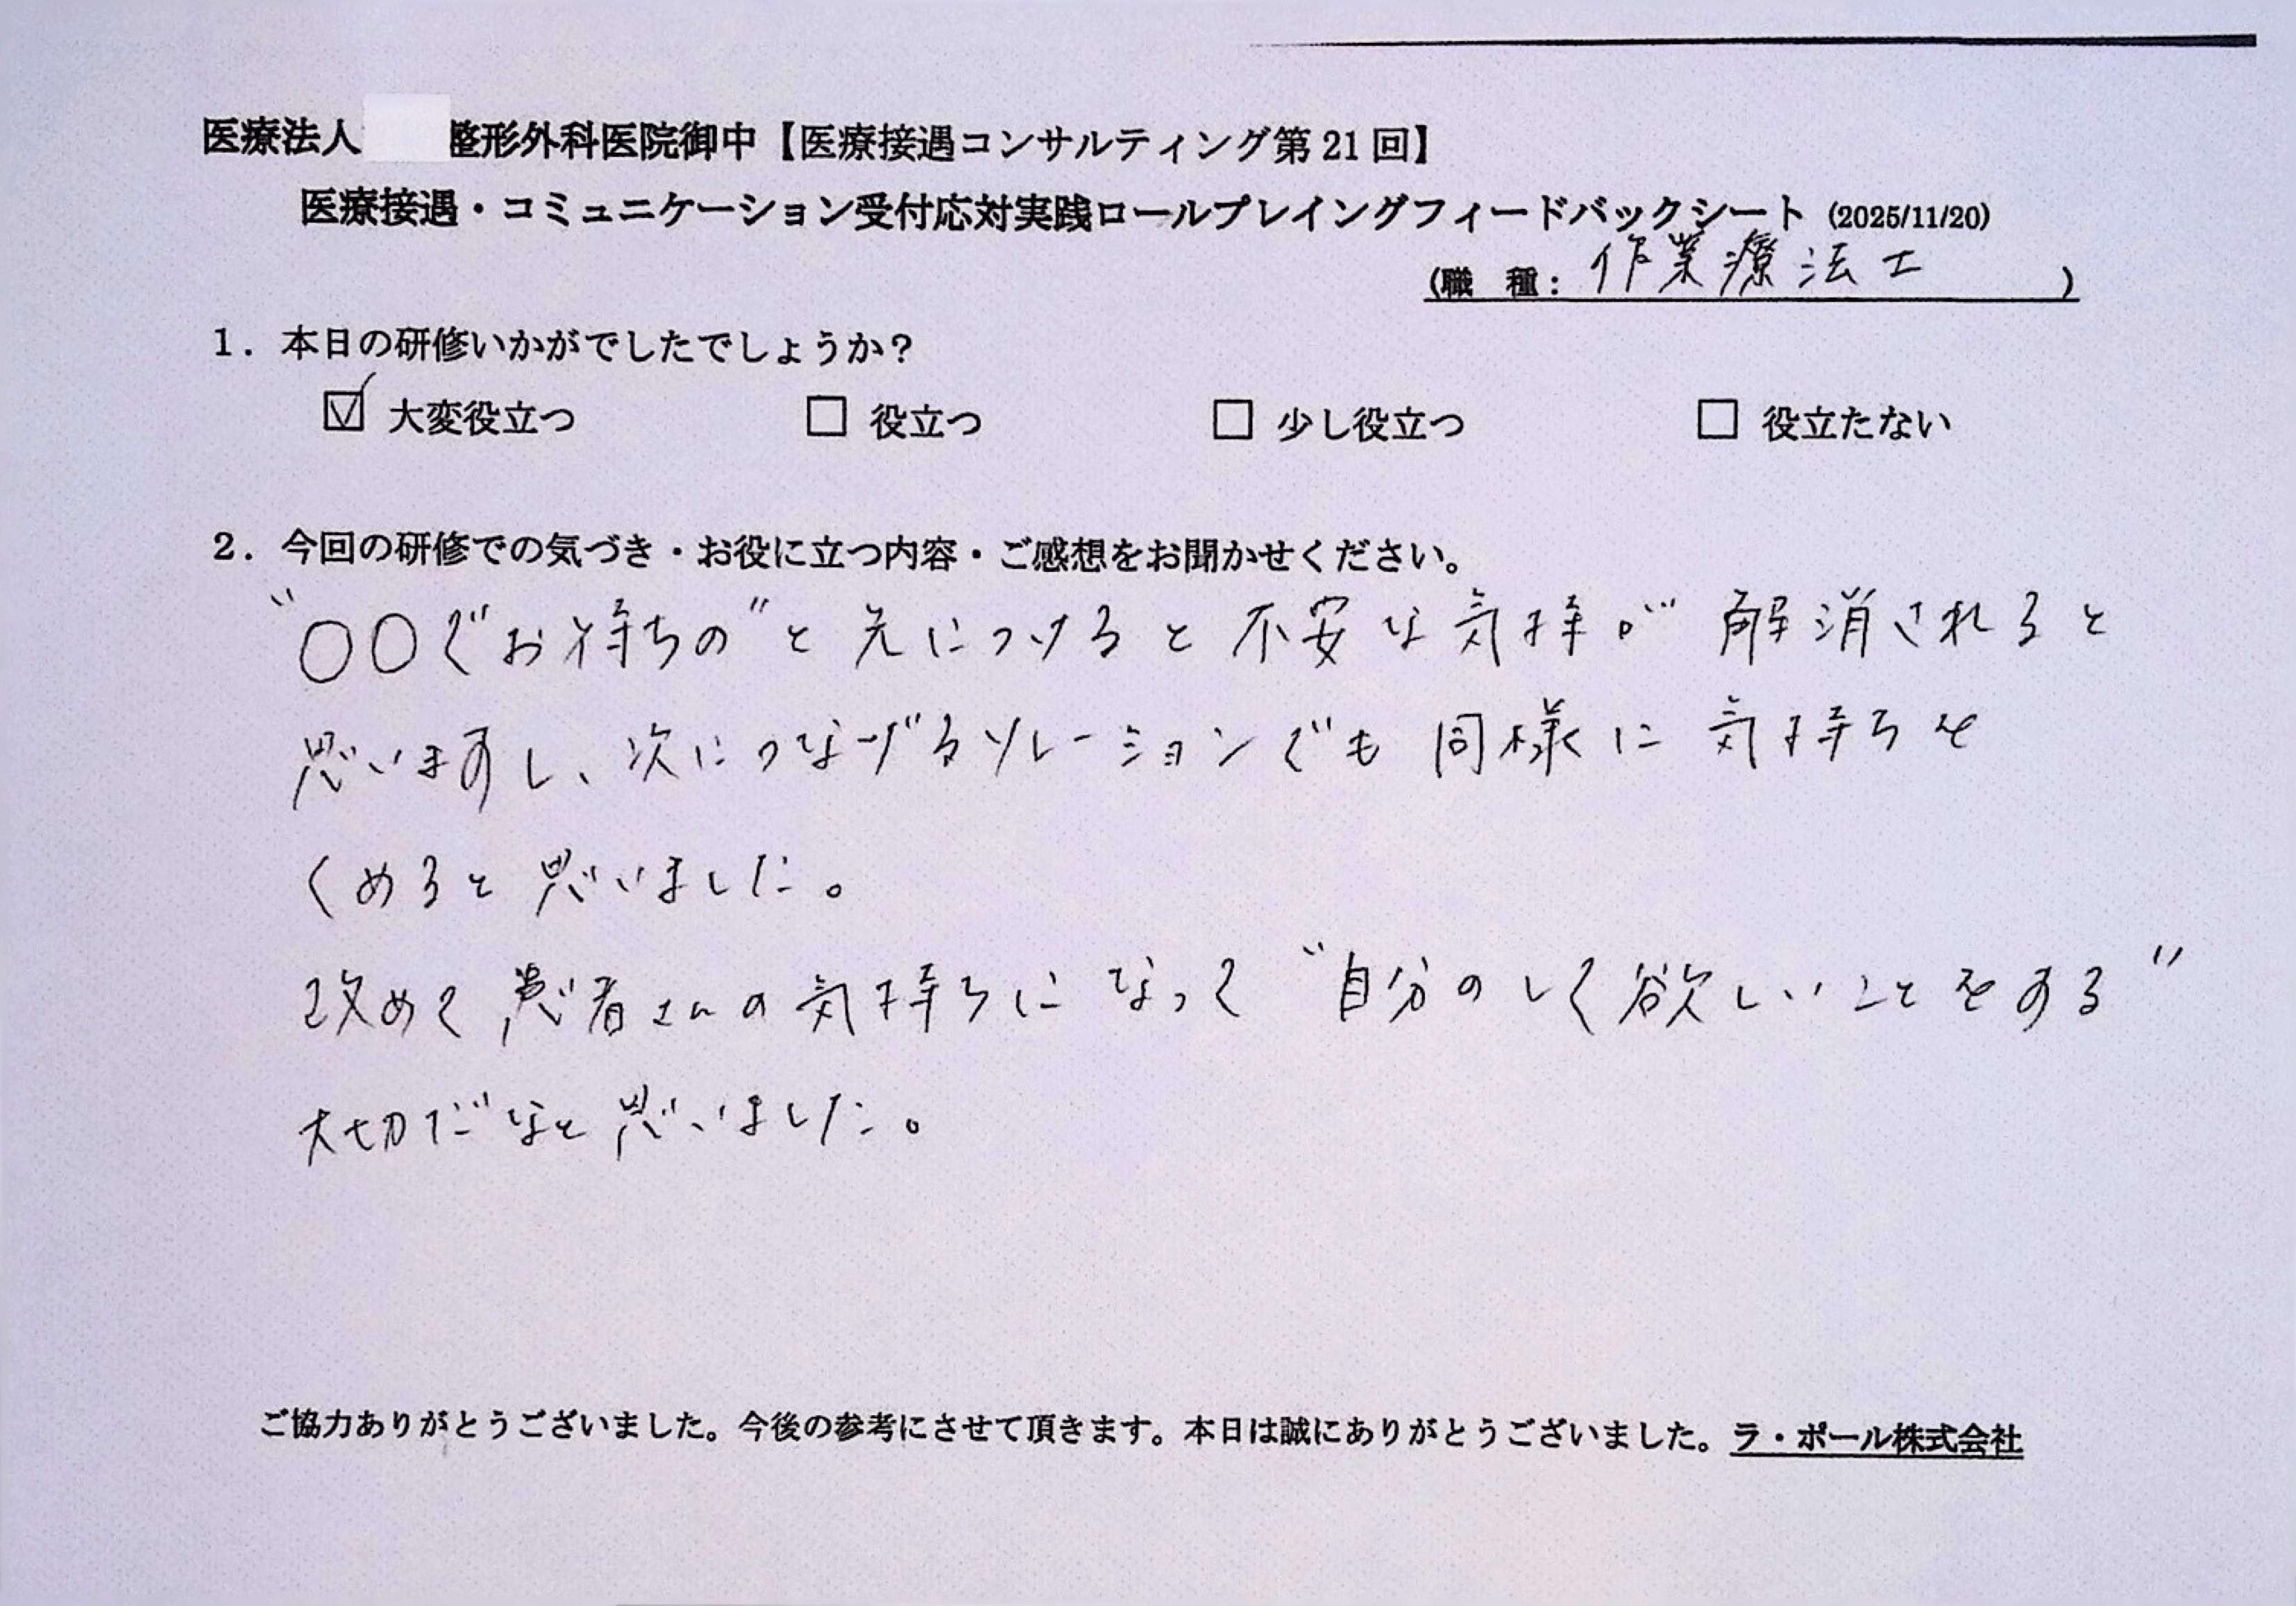 医療法人 整形外科医院御中【医療接遇コンサルティング第21回】
医療接遇・コミュニケーション受付応対実践ロールプレイングフィードバックシート (2025/11/20)
(職 種: 作業療法士 )
1. 本日の研修いかがでしたでしょうか?
☑ 大変役立つ □ 役立つ □ 少し役立つ □ 役立たない
2. 今回の研修での気づき・お役に立つ内容・ご感想をお聞かせください。
"〇〇でお待ちの"と先につけると不安な気持が解消されると
思いますし、次につなげるソレーションでも同様に気持ちを
くめると思いました。
改めて患者さんの気持ちになって"自分のして欲しいことをする"
大切だなと思いました。
ご協力ありがとうございました。今後の参考にさせて頂きます。本日は誠にありがとうございました。ラ・ポール株式会社